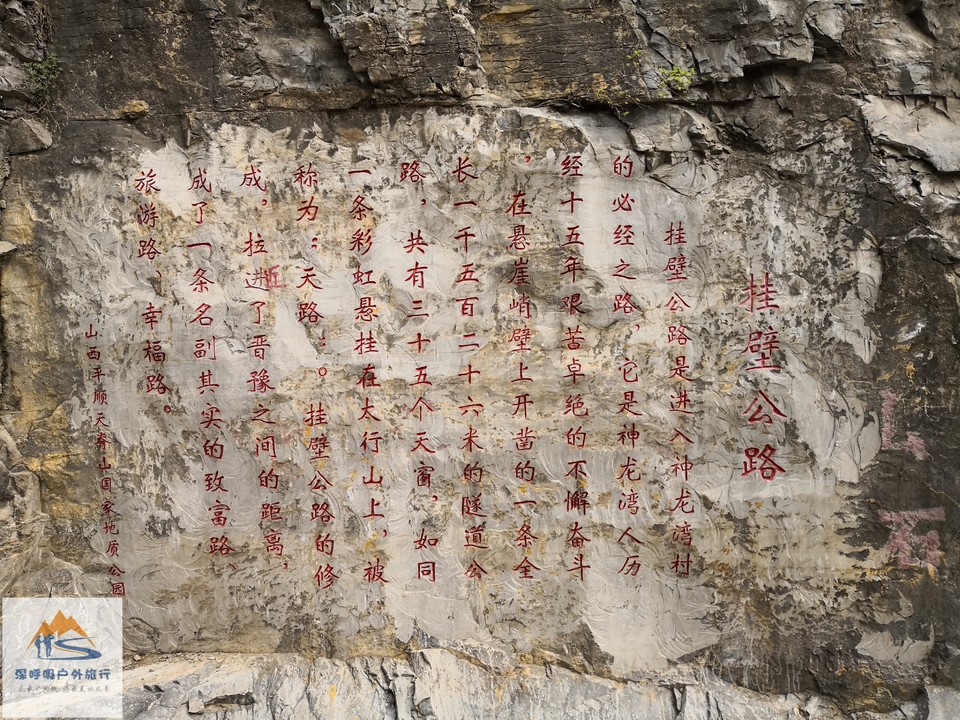 挂壁公路
挂壁公路是进入神龙湾村
的必经之路，它是神龙湾人历
经十五年艰苦卓绝的不懈奋斗
，在悬崖峭壁上开凿的一条全
长一千五百二十六米的隧道公
路，共有三十五个天窗，如同
一条彩虹悬挂在太行山上，被
称为：天路：。挂壁公路的修
成，拉进了晋豫之间的距离，
近
成了一条名副其实的致富路、
旅游路、幸福路。
山西平顺天脊山国家地质公园
深呼吸户外旅行